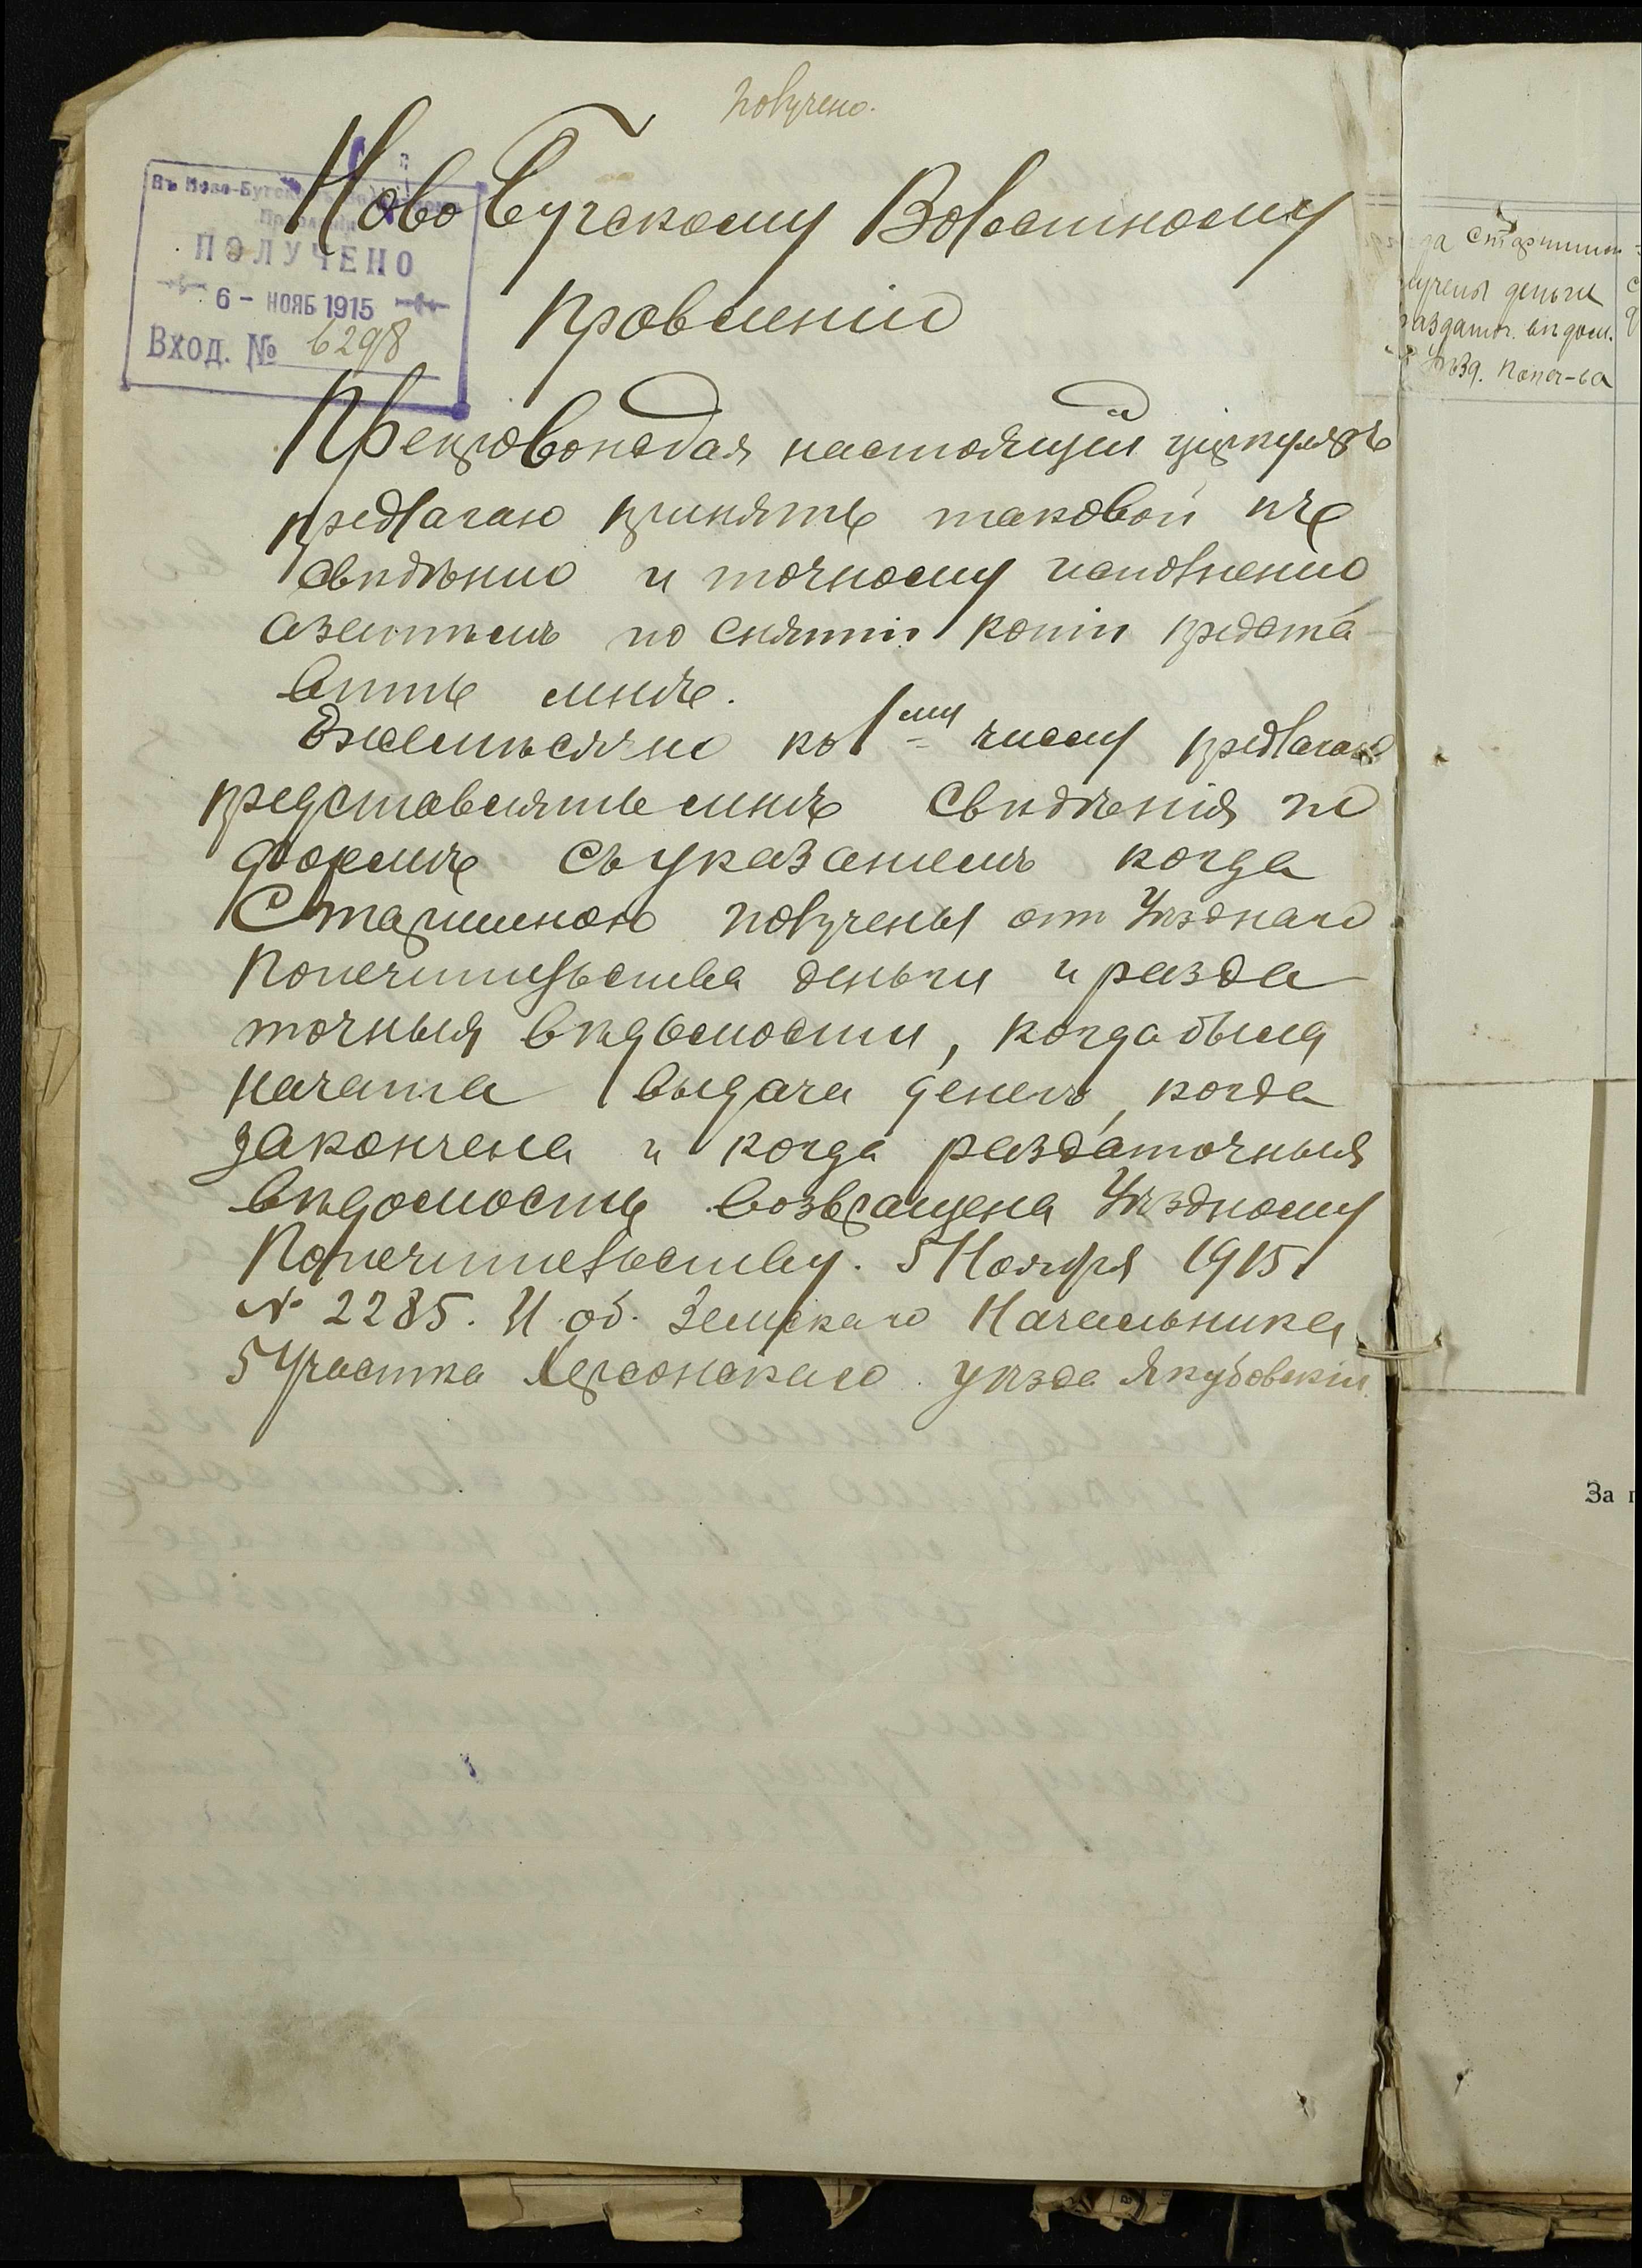 получено.
Въ Ново-Бугском Волостном
Правлении
ПОЛУЧЕНО
6 - НОЯБ 1915
Вход. № 6298
Ново Бугскому Волостному
Правленiю
Препровождая настоящий циркуляръ
предлагаю принять таковой къ
свѣдѣнию и точному исполнению
а затѣмъ по снятiи копiи предста
вить мнѣ.
Ежемѣсячно ко 1му числу предлагаю
представлять мнѣ свѣдѣнiя по
формѣ съ указанiемъ когда
Старшиною получены отъ Уѣзднаго
Попечительства деньги и разда
точныя вѣдомости, когда была
начата выдача денегъ, когда
закончена и когда раздаточныя
вѣдомость возвращена Уѣздному
Попечительству. 5 Ноября 1915
№ 2285. И. об. Земскаго Начальника
5 Участка Херсонскаго уѣзда Якубовскiй
да Старшин
лучены деньги
раздаточ. вѣдом.
Уѣзд. Попеч-ва
За